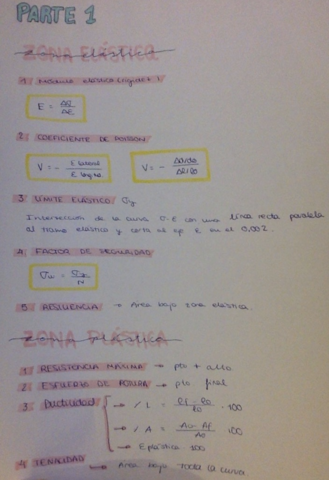 PARTE 1
ZONA elástica
1 Módulo elástico (rigidez)
E = Δσ / Δε
2 COEFICIENTE DE POISSON
V = - E lateral / E longitud V = -
3 LÍMITE ELÁSTICO σy
Intersección de la curva σ-ε con una línea recta paralela
al tramo elástico y corta al eje ε en el 0,002.
4 FACTOR DE SEGURIDAD
σw = σy / N
5 RESILIENCIA → Area bajo zona elástica
ZONA PLÁSTICA
1 RESISTENCIA MÁXIMA → pto + alto
2 ESFUERZO DE ROTURA → pto final
3 Ductilidad → % L = lf - lo / lo · 100
→ % A = Ao - Af / Ao · 100
→ E plástica · 100
4 TENACIDAD → Area bajo TODA la curva